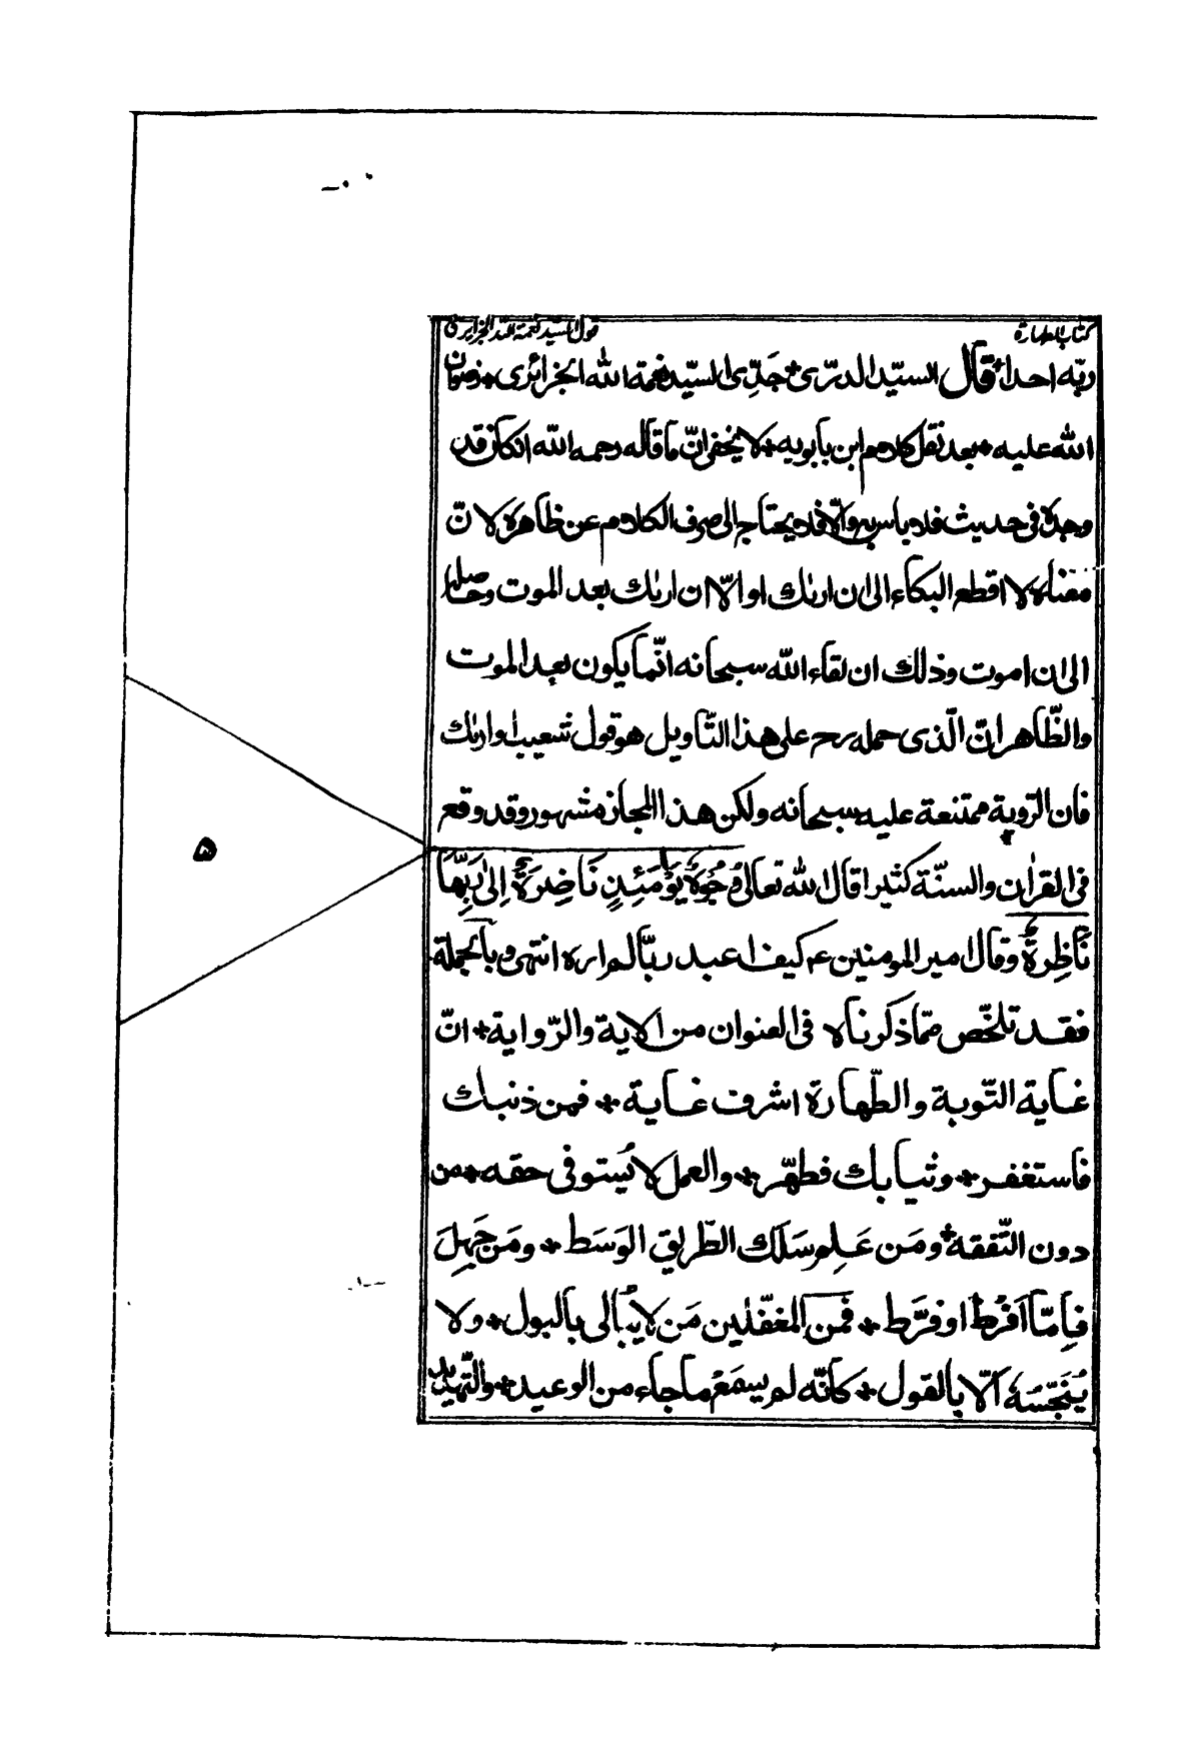 كتاب الطهارة
قول السيد نعمة الله الجزايرى
ربّه احدا * قال السيّد الدرّى * جدّى السيّد نعمة الله الجزائرى * رضوان
الله عليه * بعد نقل كلام ابن بابويه * لا يخفى انّ ما قاله رحمه الله ان كان قد
وجده فى حديث فلا باس به والّا فلا يحتاج الى صرف الكلام عن ظاهره لانّ
معناه لا اقطع البكاء الى ان اريٰك او الّا ان اريٰك بعد الموت وحاصله
الى ان اموت وذلك ان لقاء الله سبحانه انّما يكون بعد الموت
والظّاهر انّ الّذى حمله رح على هذا التّاويل هو قول شعيب او اريٰك
فان الرّوية ممتنعة عليه سبحانه ولكن هذا المجاز مشهور وقد وقع
فى القراٰن والسنّة كثيرا قال الله تعالى وُجُوهٌ يَوْمَئِذٍ نَاضِرَةٌ اِلىٰ رَبِّهَا
نَاظِرةٌ وقال امير المومنين عم كيف اعبد ربّا لم اره انتهى وبالجملة
فقد تلخّص ممّا ذكرناه فى العنوان من الاية والرّواية * انّ
غاية التّوبة والطّهارة اشرف غاية * فمن ذنبك
فاستغفر * وثيابك فطهّر * والعمل لا يُستوفى حقه * من
دون التّفقه * ومَن عَلِم سَلَك الطّريق الوَسَط * ومَن جَهِلَ
فاِمّا اَفْرَط او فرَّط * فَمن المغفّلين مَن لا يُبالى بالبول * ولا
يُنَجّسَه الّا بالقول * كانّه لم يسمَعْ ما جاء من الوعيد * والتّهديد
۵